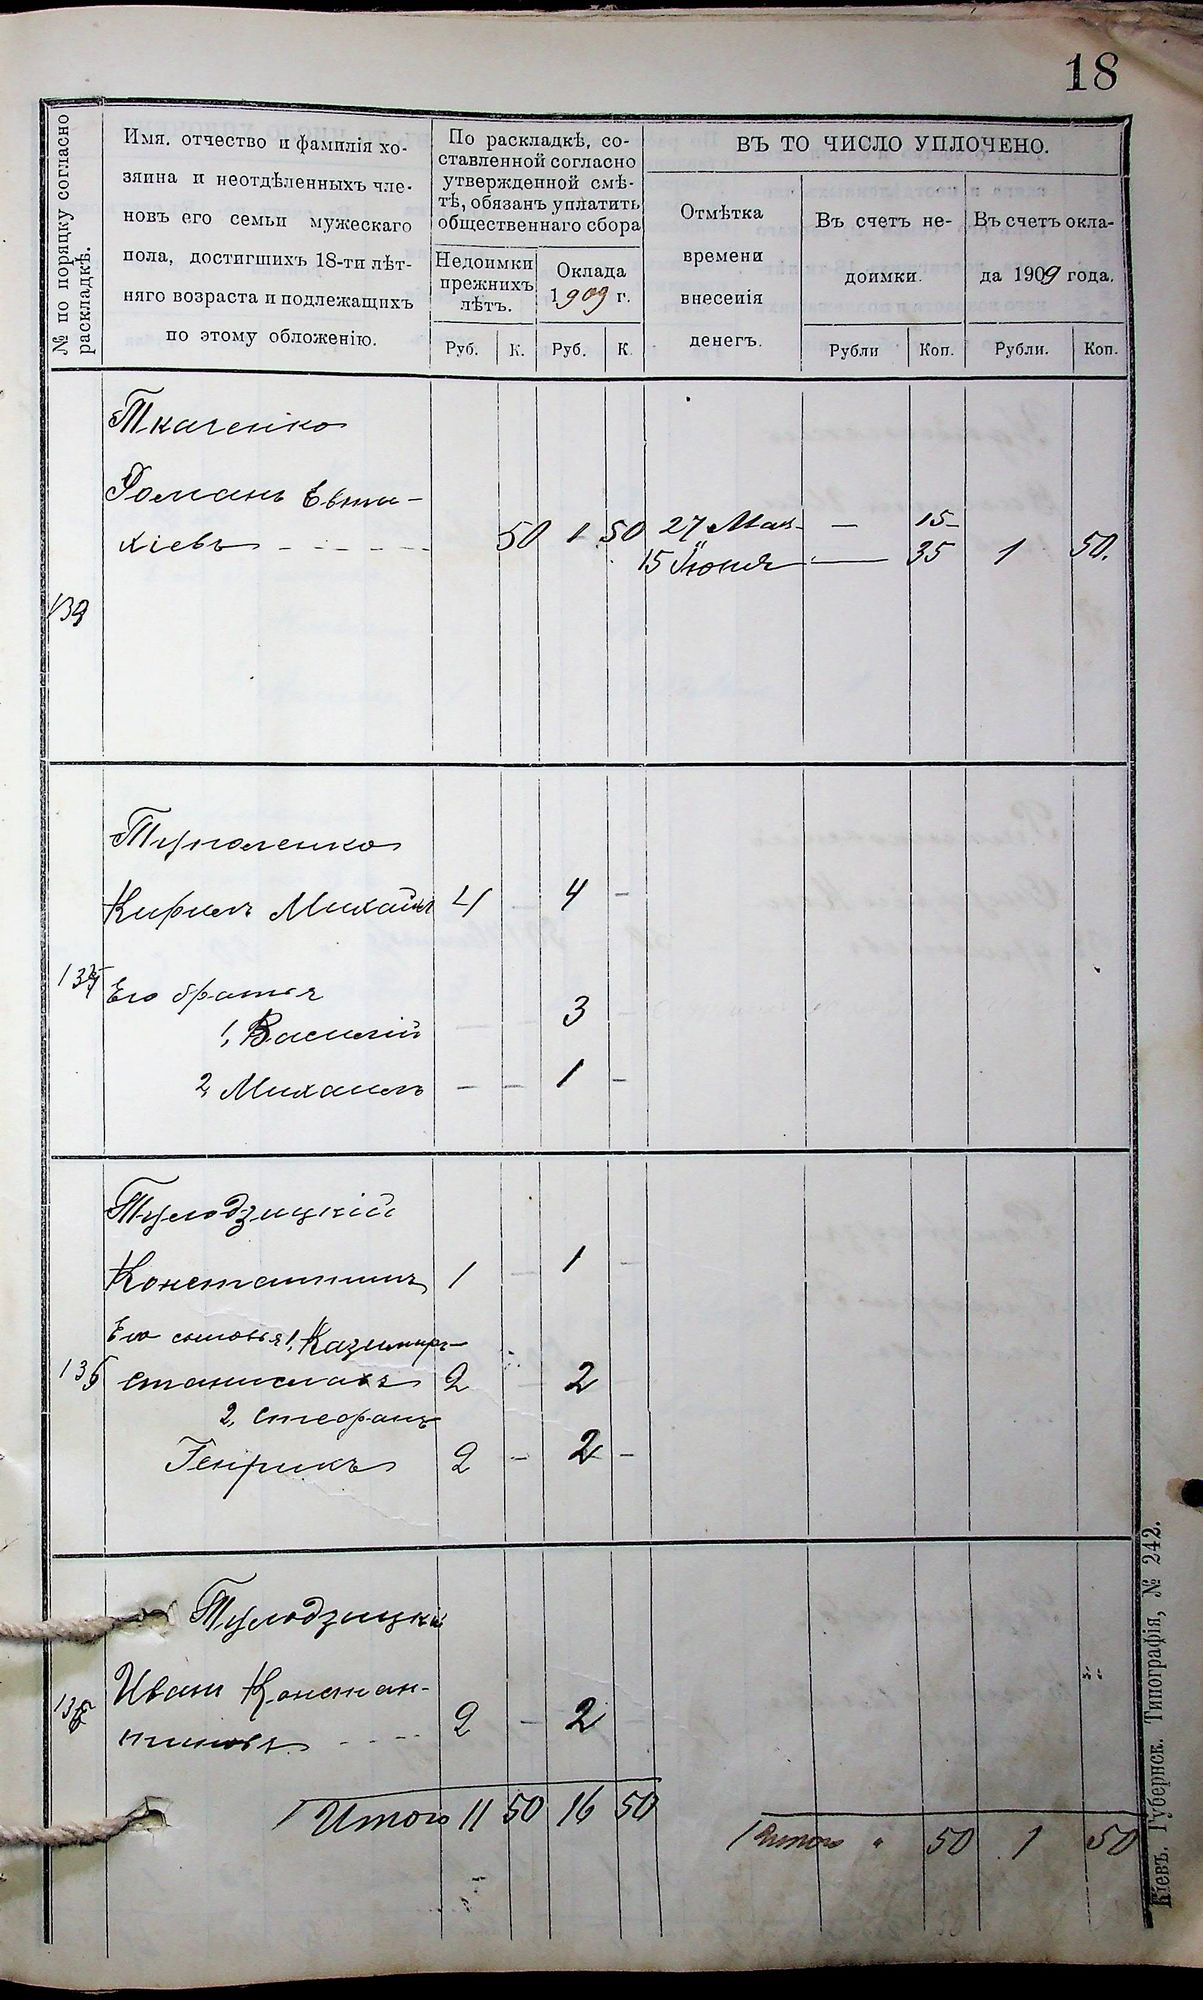 18
№ по порядку согласно
раскладкѣ.
Имя. отчество и фамилія хо-
зяина и неотдѣленныхъ чле-
новъ его семьи мужескаго
пола, достигшихъ 18-ти лѣт-
няго возраста и подлежащихъ
по этому обложенію.
По раскладкѣ, со-
ставленной согласно
утвержденной смѣ-
тѣ, обязанъ уплатить
общественнаго сбора
Недоимки
прежнихъ
лѣтъ.
Оклада
1909 г.
Руб. К. Руб. К
ВЪ ТО ЧИСЛО УПЛОЧЕНО.
Отмѣтка
времени
внесенія
денегъ.
Въ счетъ не-
доимки.
Въ счетъ окла-
да 1909 года.
Рубли Коп. Рубли. Коп.
Ткаченко
Романъ Евти-
хіевъ - - - - - 50 1 50 27 Мая - — 15
15 Іюня — 35 1 50.
Туполенко
Кирилъ Михайл 4 - 4 -
Его братья
1, Василій — — 3
2, Михаилъ — — 1 -
Тулодзицкій
Константинъ 1 - 1 -
Его сыновья 1, Казимиръ-
Станиславъ 2 - 2
2, Стефанъ
Генрикъ 2 - 2 -
Тулодзицкій
Иванъ Констан-
тиновъ - - - 2 - 2
Итого 11 50 16 50
Итого " 50 1 50
Кіевъ. Губернск. Типографія, № 242.